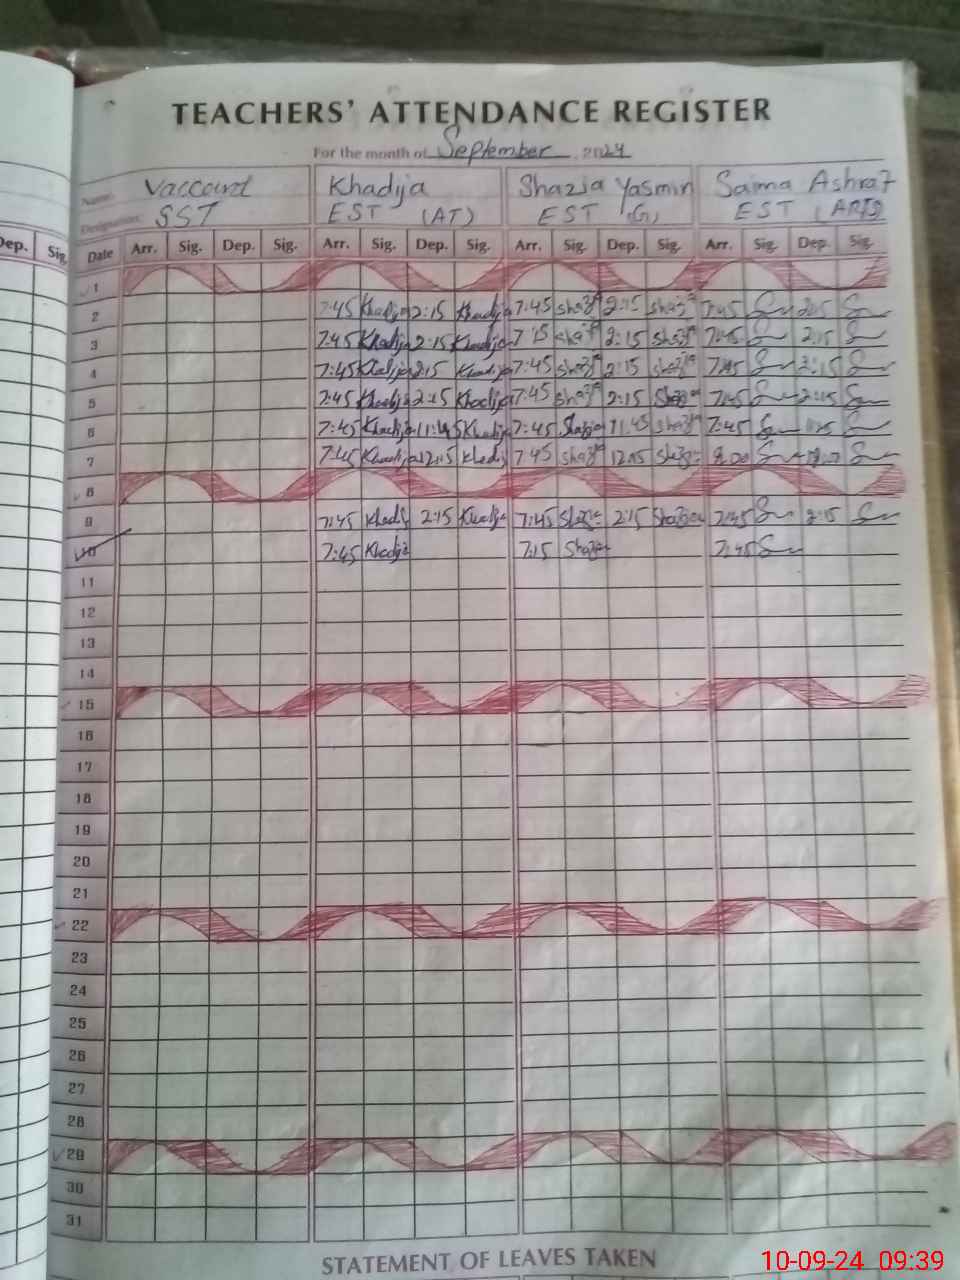 TEACHERS' ATTENDANCE REGISTER
For the month of September, 2024
Name: Vaccand Khadija Shazia Yasmin Saima Ashraf
Designation: SST EST (AT) EST (G) EST (ARTS)
Dep. Sig. Date Arr. Sig. Dep. Sig. Arr. Sig. Dep. Sig. Arr. Sig. Dep. Sig. Arr. Sig. Dep. Sig.
1
2 7:45 Khadija 2:15 Khadija 7:45 Shazia 2:15 Shazia 7:45
3 7:45 Khadija 2:15 Khadija 2:15 7:45 2:15
4 7:45 Khadija 2:15 Khadija 7:45 Shazia 2:15 Shazia 7:45 2:15
5 7:45 Khadija 2:15 Khadija 7:45 Shazia 2:15 Shazia 7:45 2:15
6 7:45 Khadija 11:45 Khadija 7:45 Shazia 11:45 Shazia 7:45
7 7:45 Khadija 12:15 Khadij 7:45 Shazia Shazia 8:00
8
9 7:45 Khadij 2:15 Khadija 7:45 Shazia 2:15 Shazia 7:45 2:15
10 7:45 Khadija 7:15 Shazia 7:45
11
12
13
14
15
16
17
18
19
20
21
22
23
24
25
26
27
28
29
30
31
STATEMENT OF LEAVES TAKEN
10-09-24 09:39